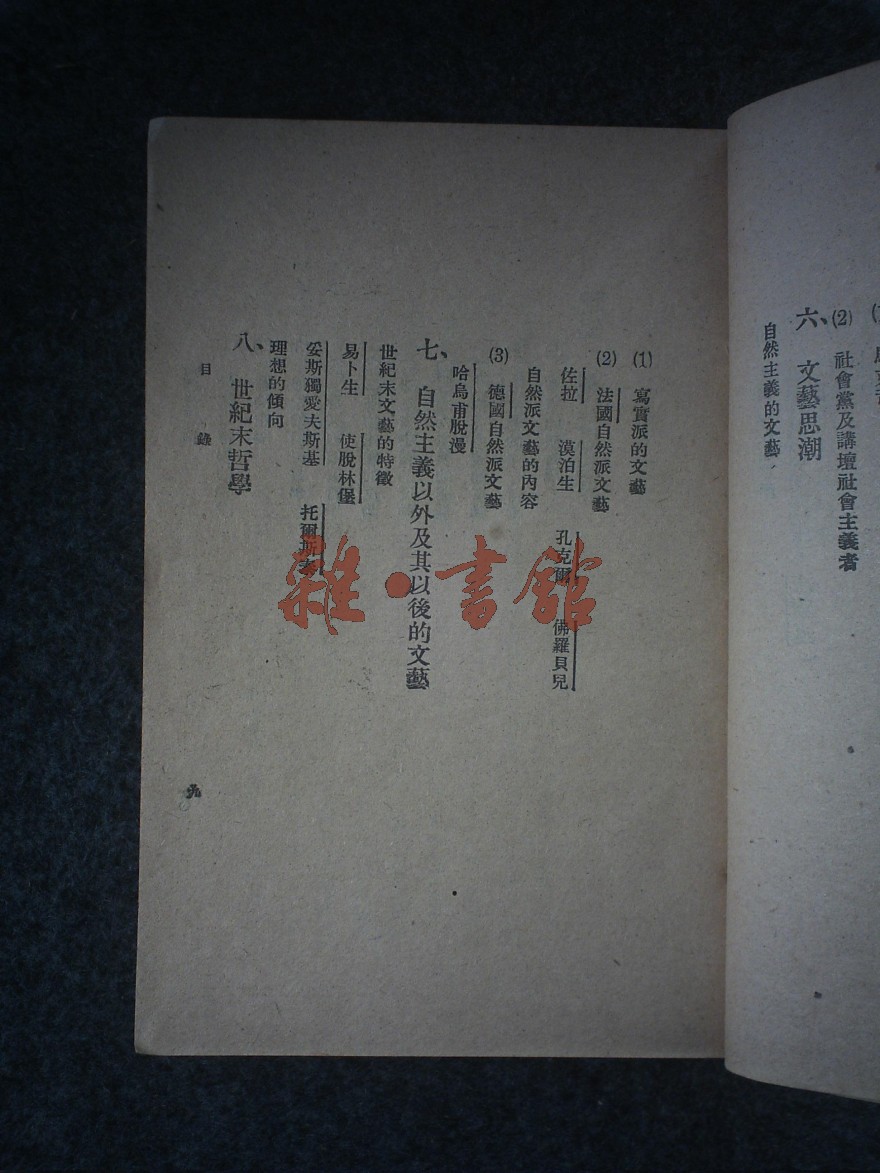 (2) 社會黨及講壇社會主義者
六、文藝思潮
自然主義的文藝
(1) 寫實派的文藝
(2) 法國自然派文藝
佐拉 漠泊生 孔克爾 佛羅貝兒
自然派文藝的內容
(3) 德國自然派文藝
哈烏甫脫漫
七、自然主義以外及其以後的文藝
世紀末文藝的特徵
易卜生 使脫林堡
妥斯獨愛夫斯基 托爾斯泰
理想的傾向
八、世紀末哲學
目錄
九
雜·書館